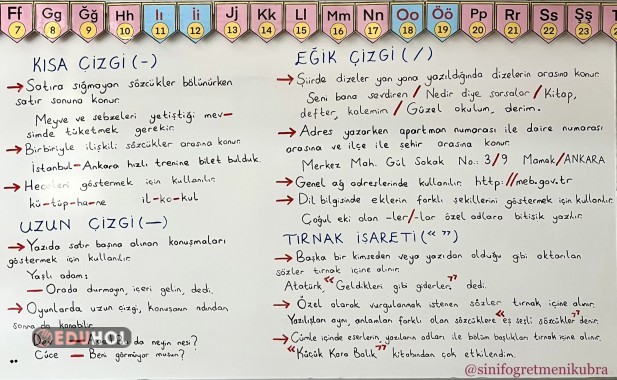 Ff Gg Ğğ Hh Iı İi Jj Kk Ll Mm Nn Oo Öö Pp Rr Ss Şş T
7 8 9 10 11 12 13 14 15 16 17 18 19 20 21 22 23
KISA ÇİZGİ (-)
→ Satıra sığmayan sözcükler bölünürken
satır sonuna konur.
Meyve ve sebzeleri yetiştiği mev-
simde tüketmek gerekir.
→ Birbiriyle ilişkili sözcükler arasına konur.
İstanbul-Ankara hızlı trenine bilet bulduk.
→ Heceleri göstermek için kullanılır.
kü-tüp-ha-ne il-ko-kul
UZUN ÇİZGİ (—)
→ Yazıda satır başına alınan konuşmaları
göstermek için kullanılır.
Yaşlı adam:
— Orada durmayın, içeri gelin, dedi.
→ Oyunlarda uzun çizgi, konuşanın adından
sonra da konabilir.
EDUHOL da neyin nesi?
Cüce — Beni görmüyor musun?
EĞİK ÇİZGİ (/)
→ Şiirde dizeler yan yana yazıldığında dizelerin arasına konur.
Seni bana sevdiren / Nedir diye sorsalar / Kitap,
defter, kalemim / Güzel okulum, derim.
→ Adres yazarken apartman numarası ile daire numarası
arasına ve ilçe ile şehir arasına konur.
Merkez Mah. Gül Sokak No: 3/9 Mamak/ANKARA
→ Genel ağ adreslerinde kullanılır. http://meb.gov.tr
→ Dil bilgisinde eklerin farklı şekillerini göstermek için kullanılır.
Çoğul eki olan -ler/-lar özel adlara bitişik yazılır.
TIRNAK İŞARETİ (“ ”)
→ Başka bir kimseden veya yazıdan olduğu gibi aktarılan
sözler tırnak içine alınır.
Atatürk, “Geldikleri gibi giderler.” dedi.
→ Özel olarak vurgulanmak istenen sözler tırnak içine alınır.
Yazılışları aynı, anlamları farklı olan sözcüklere “eş sesli sözcükler” denir.
→ Cümle içinde eserlerin, yazıların adları ile bölüm başlıkları tırnak içine alınır.
“Küçük Kara Balık” kitabından çok etkilendim.
@sinifogretmenikubra